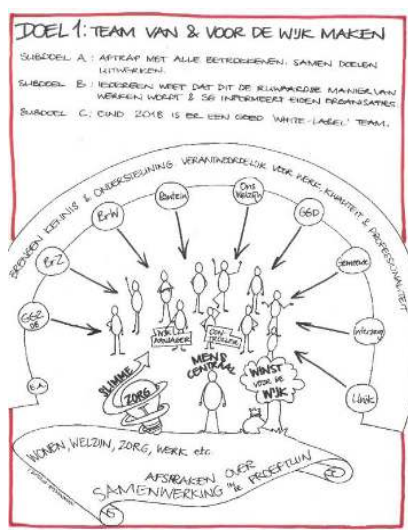 DOEL 1: TEAM VAN & VOOR DE WIJK MAKEN
SUBDOEL A : AFTRAP MET ALLE BETROKKENEN. SAMEN DOELEN
UITWERKEN.
SUBDOEL B : IEDEREEN WEET DAT DIT DE RIJWAARDSE MANIER VAN
WERKEN WORDT & INFORMEERT EIGEN ORGANISATIES.
SUBDOEL C : EIND 2018 IS ER EEN GOED 'WHITE-LABEL' TEAM.
BRENGEN KENNIS & ONDERSTEUNING VERANTWOORDELIJK VOOR WERK, KWALITEIT & PROFESSIONALITEIT
E.A.
GGZ
BrZ
BrW
Pantein
Ons
Welzijn
GGD
Gemeente
Unik
WIJK
AANJAGER
MENS
CENTRAAL
SLIMME
ZORG
WINST
VOOR DE
WIJK
WONEN, WELZIJN, ZORG, WERK etc
AFSPRAKEN OVER
SAMENWERKING IN DE PROEFTUIN